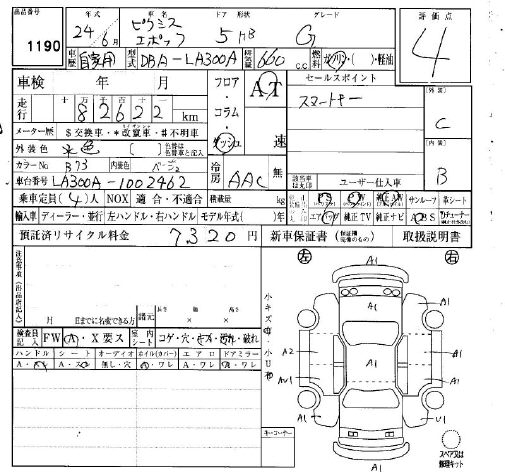 出品番号
1190
年式 車名 ドア 形状 グレード
24年 6月 ピクシス エポック 5 HB G
評価点
4
車歴 自家用 型式 DBA-LA300A 排気量 660 c.c. 燃料 ガソリン・( )・軽油
車検 年 月
フロア・コラム・ダッシュ
AT
速
セールスポイント
スマートキー
外装 C
走行 82622 km
メーター歴 $交換車・*改竄車・#不明車
外装色 水色 ( ) 色替は色替車と記入
カラーNo B73 内装色 ベージュ
内装 B
車台番号 LA300A-1002462
冷房 AAC 無
ユーザー仕入車
乗車定員(4)人 NOX 適合・不適合 積載量 kg
サンルーフ 革シート
輸入車 ディーラー・並行 左ハンドル・右ハンドル モデル年式( )年
エアバッグ 純正TV 純正ナビ ABS
預託済リサイクル料金 7320円 新車保証書 取扱説明書
注意事項(出品店記入)
月 日までに名変できる方
諸元 長さ 幅 高さ
× ×
検査員記入 FW A・X要ス 室内シート コゲ・穴・キズ・汚れ・破れ
ハンドル シート オーディオ ホイル(カバー) エアロ ドアミラー
A・スレ A・スレ 無し・穴 A・ワレ A・ワレ A・ワレ
小キズ有・小凹有
キーナンバー
左 右
A1
A1
A1 A1
A2 A1 A1
AU1 A1
A1 U1
A1
スペアタイヤ又は修理キット